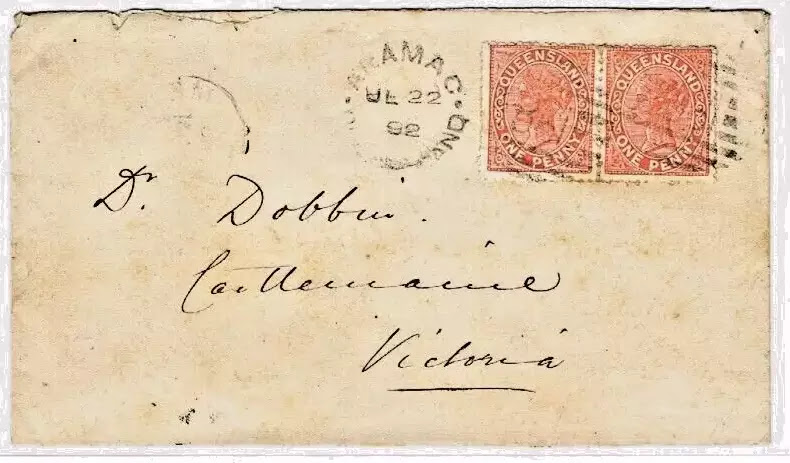 ARAMAC
JL 22
92
QUEENSLAND
ONE PENNY
QUEENSLAND
ONE PENNY
Dr. Dobbin.
Castlemaine
Victoria